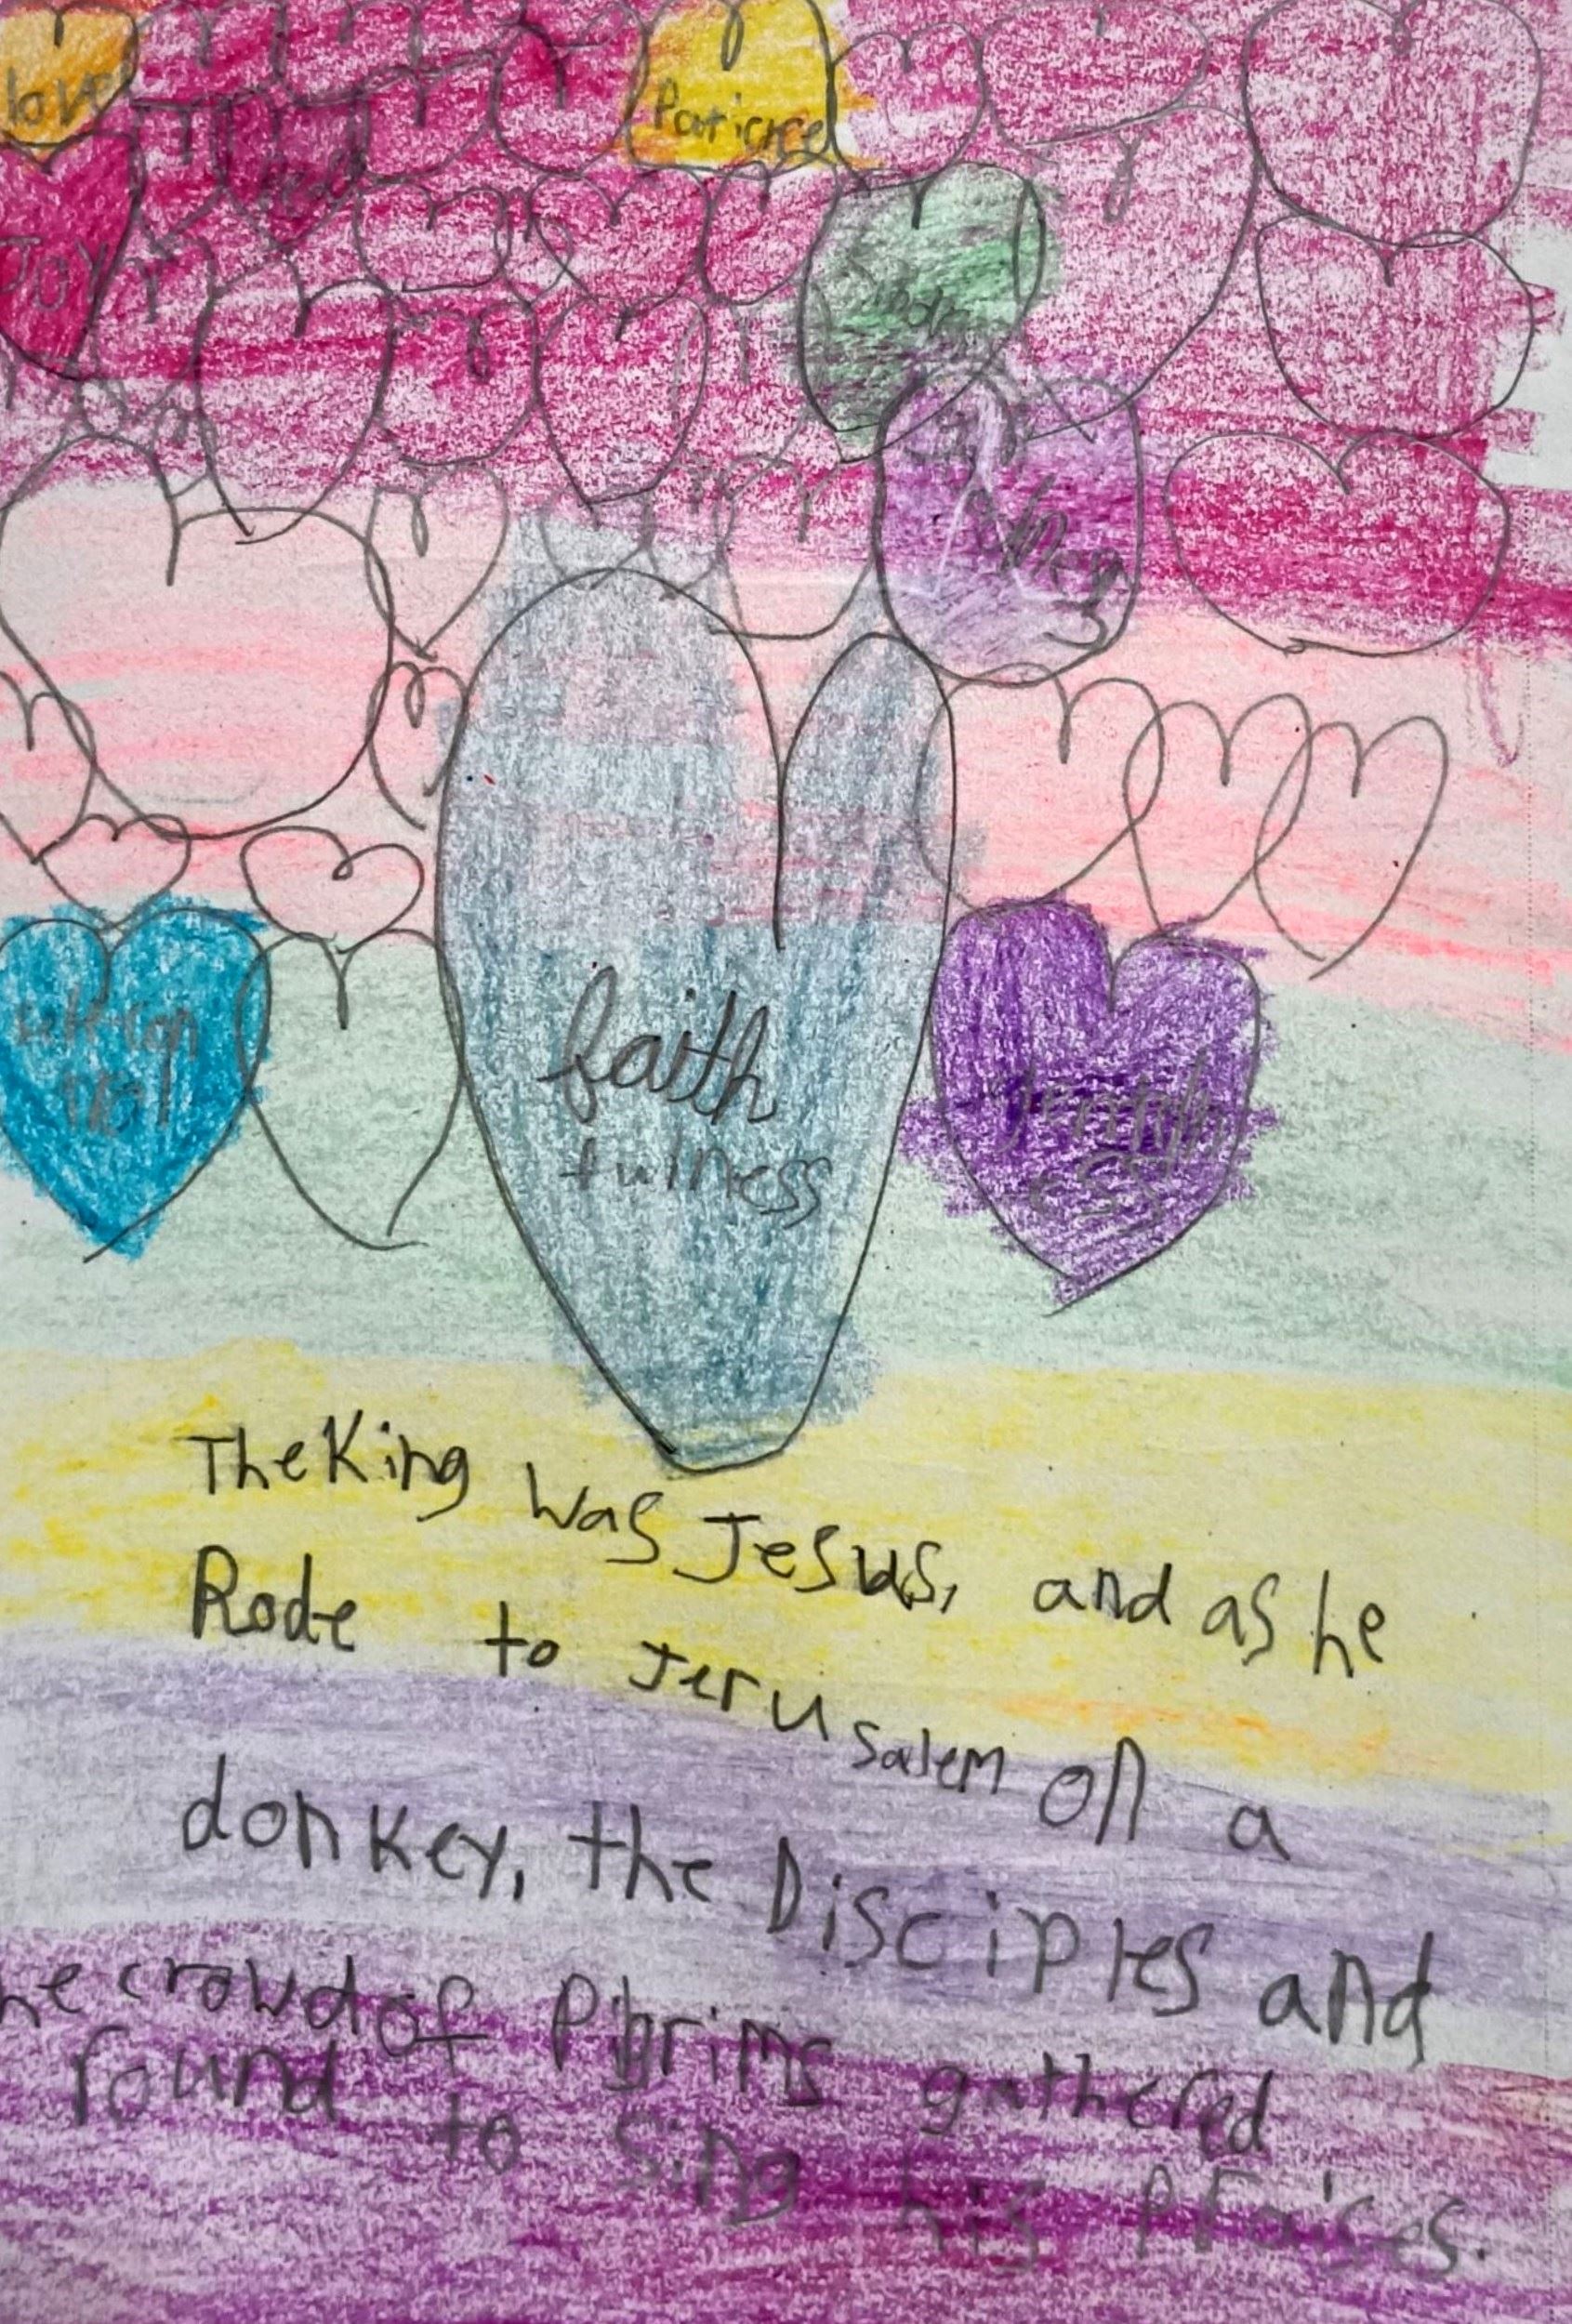 love
Patience
JOY
faith
fulness
The King was Jesus, and as he
Rode to Jerusalem on a
donkey, the Disciples and
he crowd of Pilgrims gathered
round to sing his Praises.